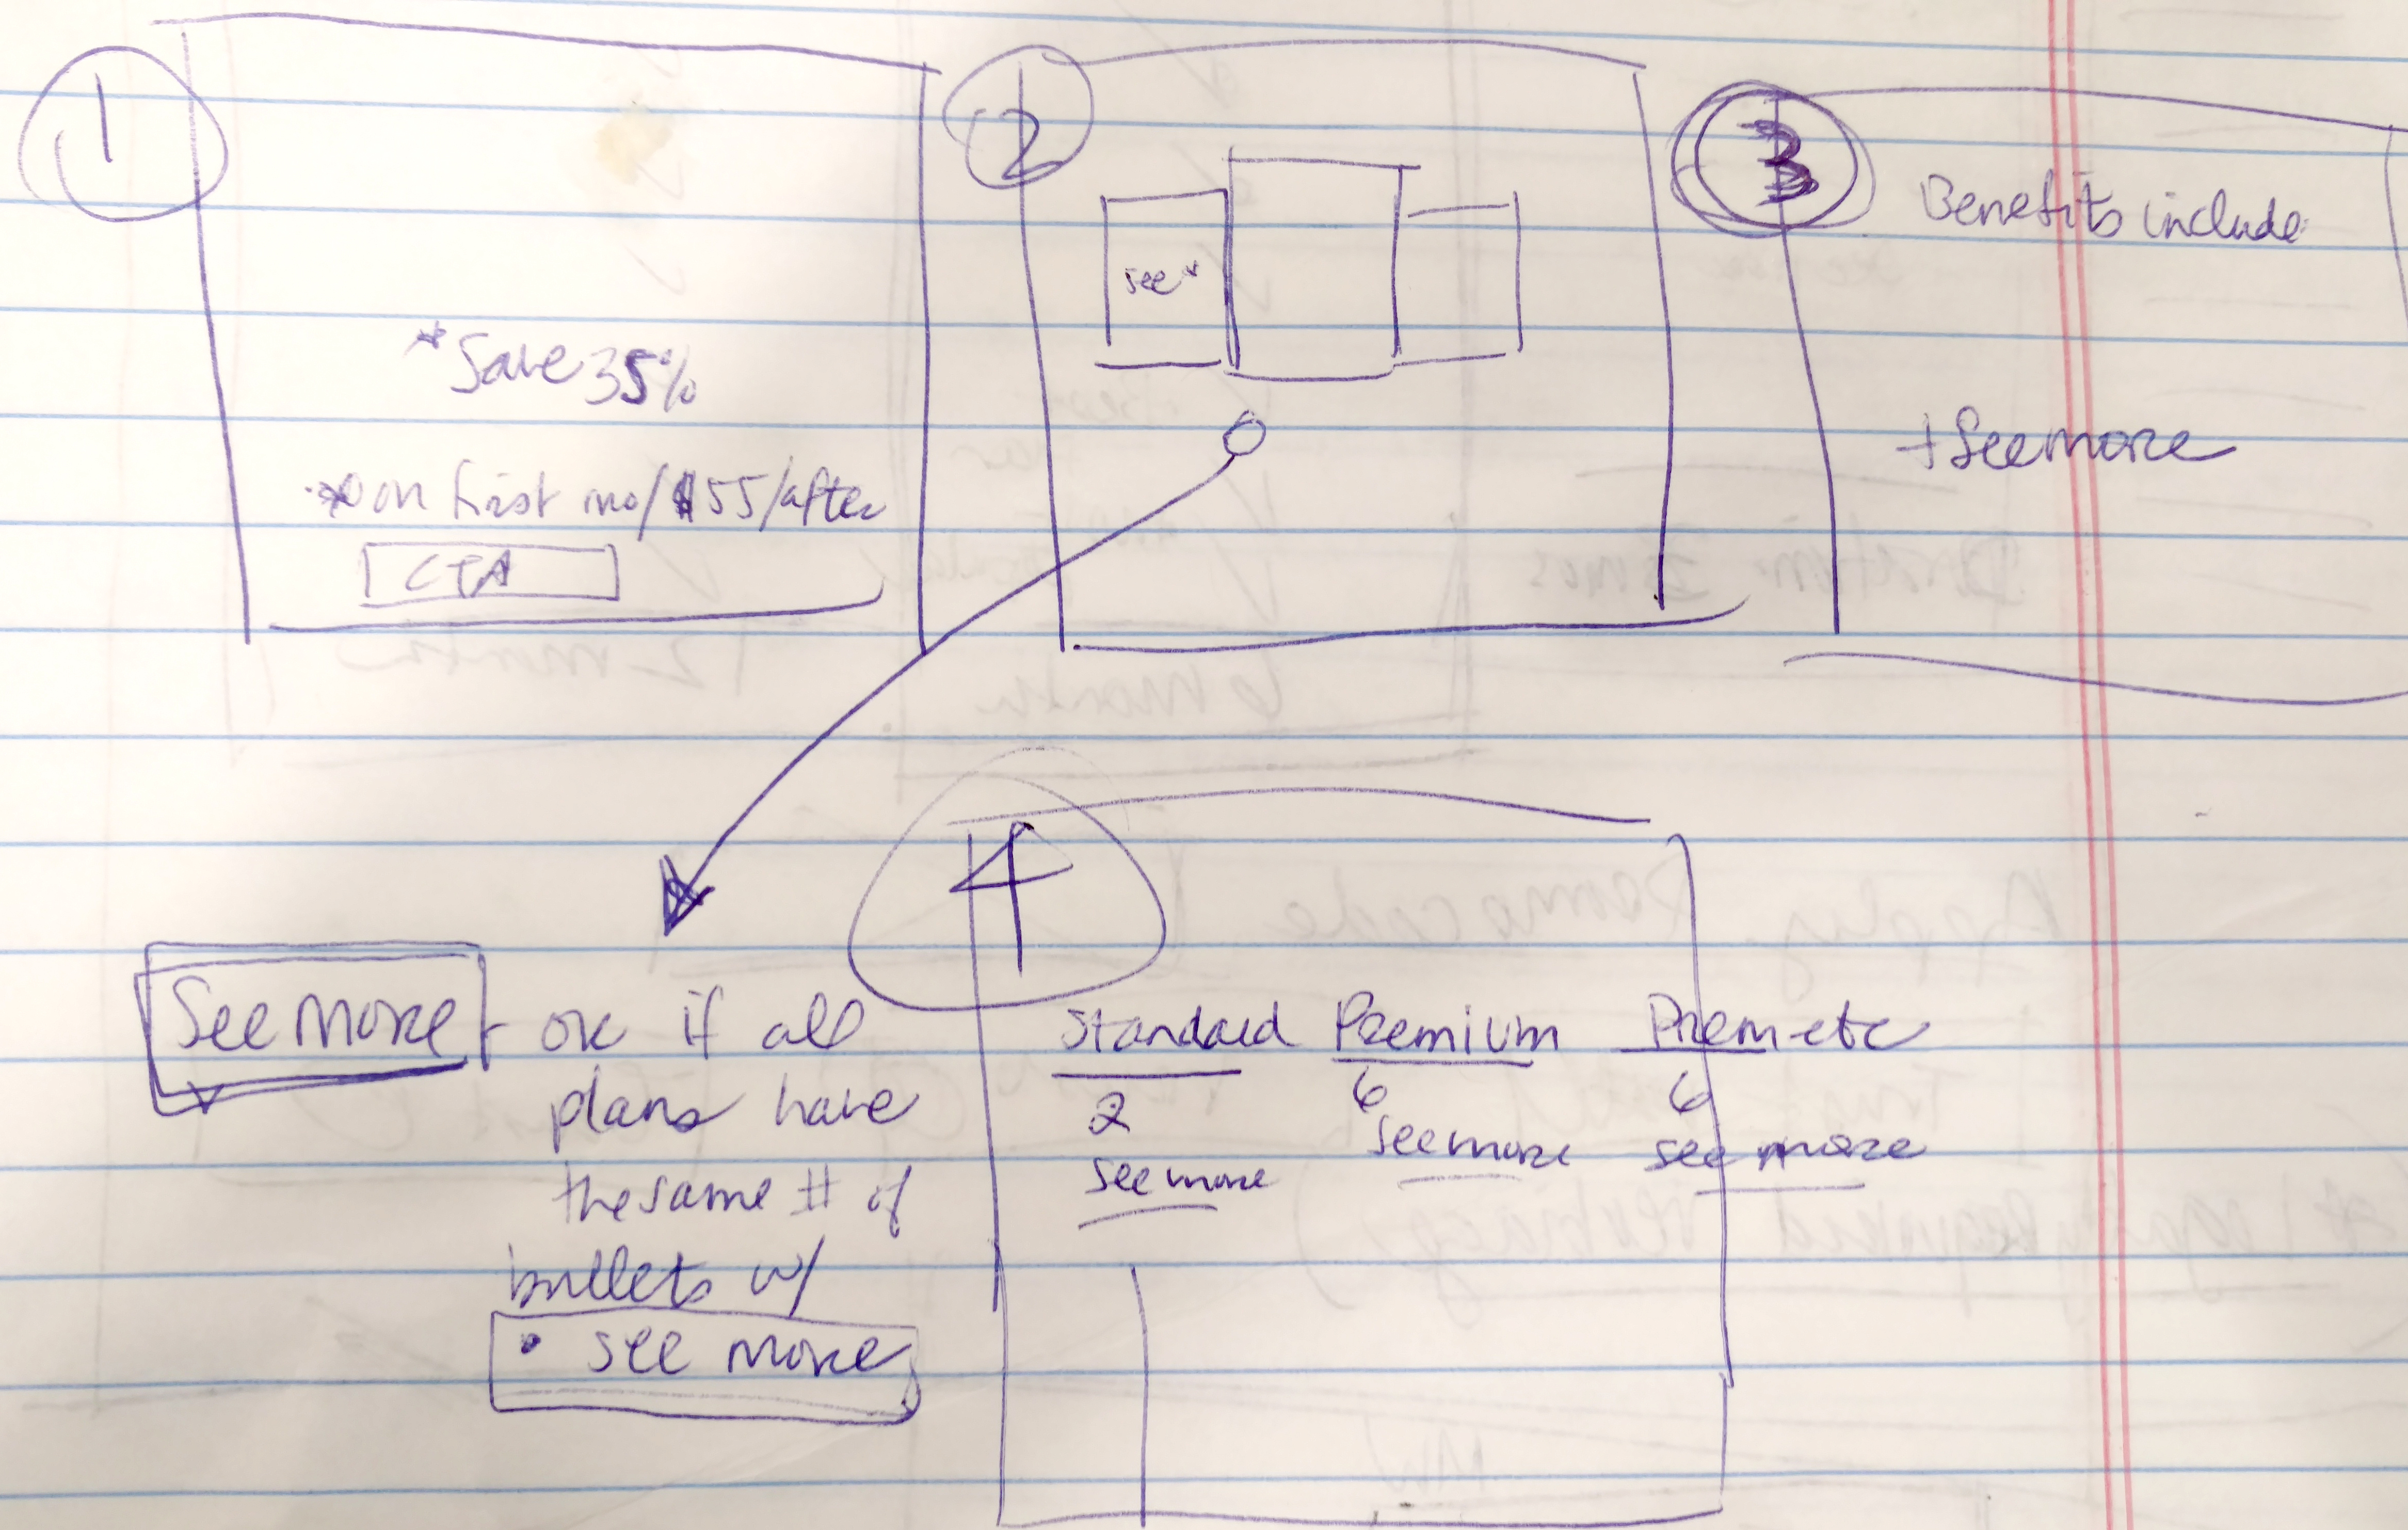 1
*Save 35%
*on first mo/$55/after
CTA
2
see*
3
Benefits include
+ See more
See more - ok if all
plans have
the same # of
bullets w/
• see more
4
Standard Premium Prem etc
2 6 6
see more see more see more